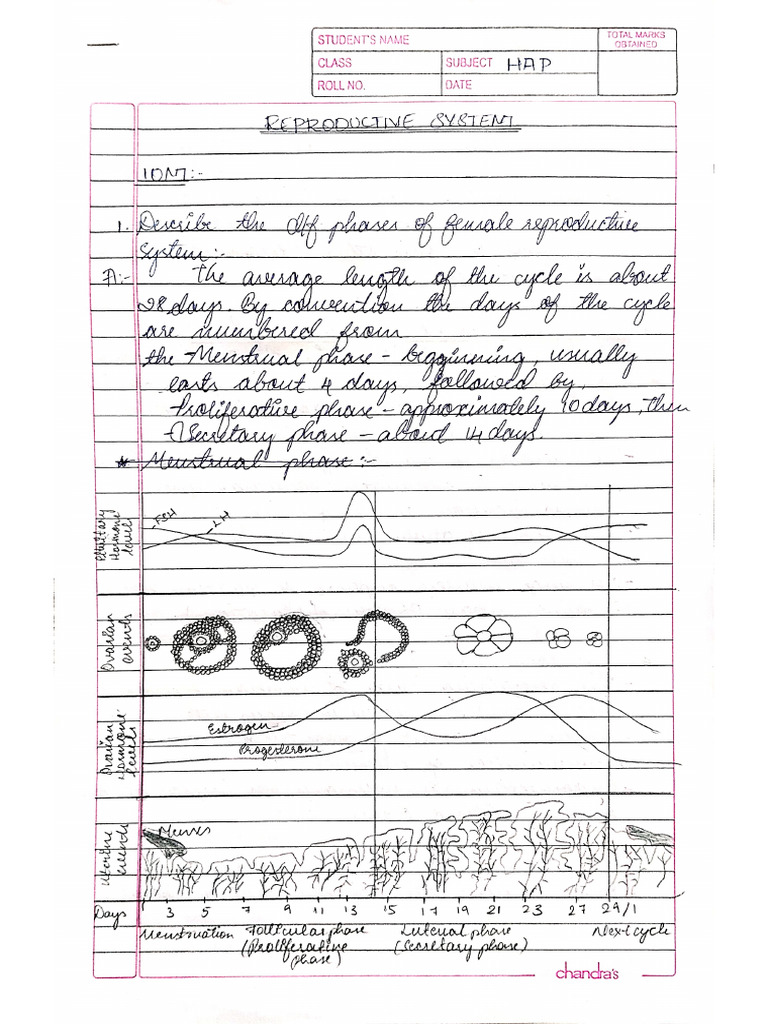 STUDENT'S NAME
TOTAL MARKS
OBTAINED
CLASS
SUBJECT HAP
ROLL NO.
DATE
REPRODUCTIVE SYSTEM
10M:-
1. Describe the diff phases of female reproductive
system:-
A:- The average length of the cycle is about
28 days. By convention the days of the cycle
are numbered from
the - Menstrual phase - begginning, usually
lasts about 4 days, followed by,
Proliferative phase - approximately 10 days, then
Secretary phase - about 14 days.
* Menstrual phase:-
Pituitary
Hormone
levels
FSH
LH
Ovarian
events
Ovarian
Hormone
levels
Estrogen
Progesterone
Uterine
events
Menses
Days 1 3 5 7 9 11 13 15 17 19 21 23 27 29/1
Menstruation Follicular phase Luteual phase Next cycle
(Proliferative (Secretary phase)
phase)
chandra's